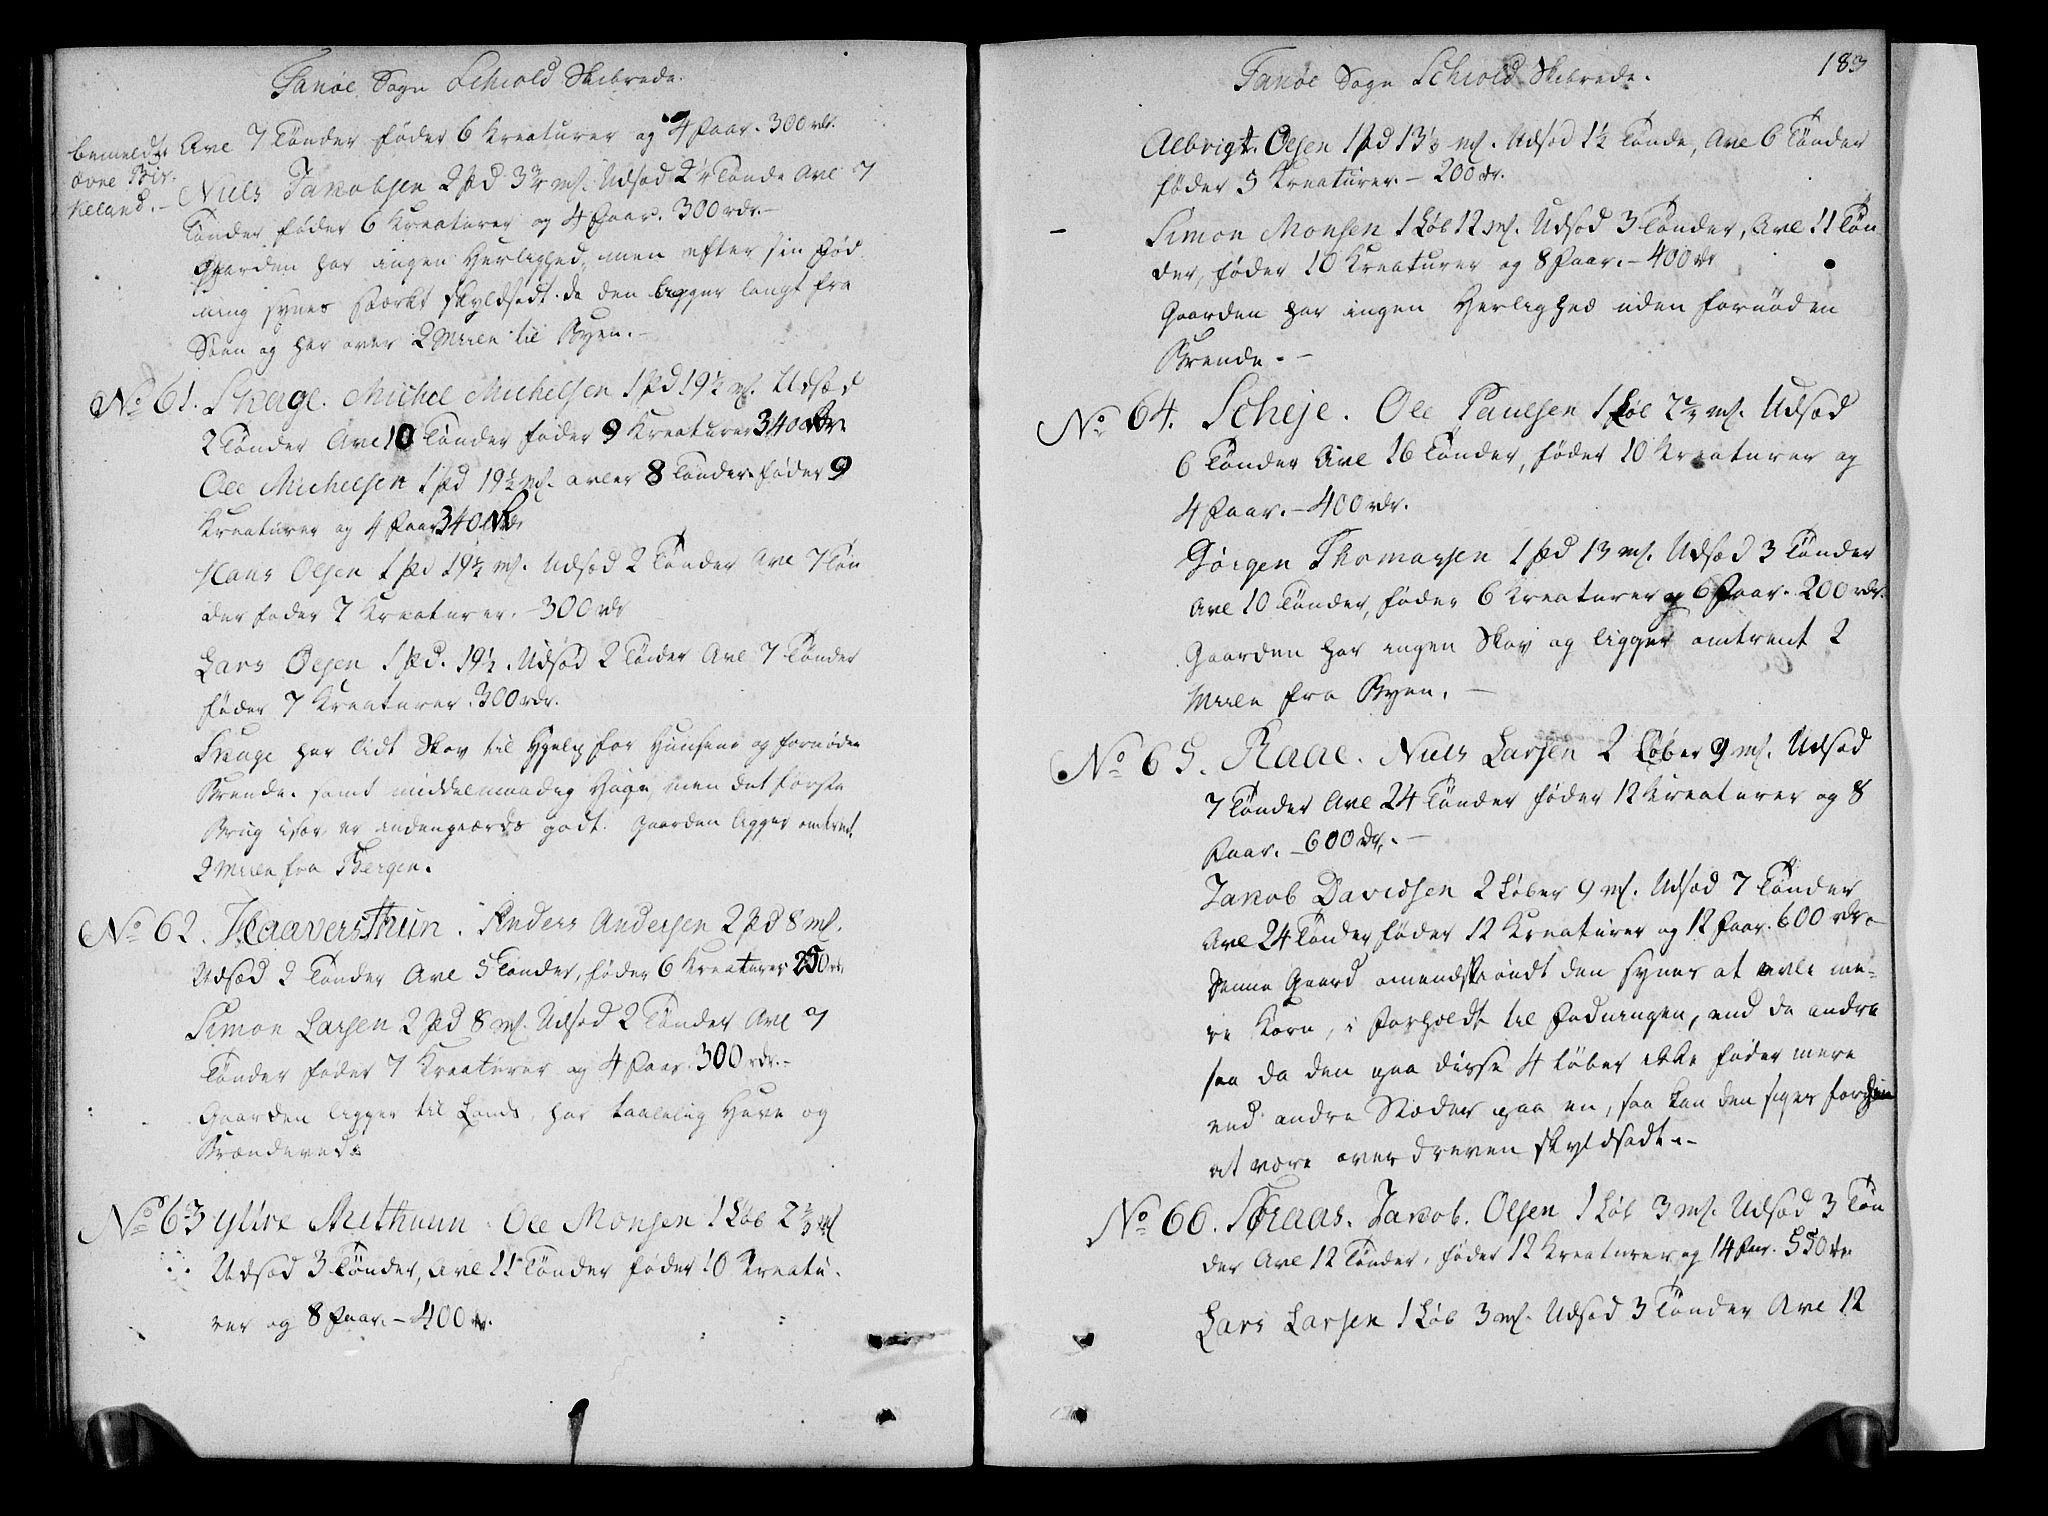 Fanøe Sogn Schiold Skibrede.
bemeldte
øvre Bir-
keland. -
Avl 7 Tønder føder 6 Kreaturer og 4 Faar. 300 rdr.
Niels Jakobsen 2 pd 3¾ mk. Udsæd 2½ Tønde Avl 7
Tønder føder 6 Kreaturer og 4 Faar. 300 rdr. -
Gaarden har ingen Herlighed, men efter sin Fød
ning synes stærkt skyldsadt. da den ligger langt fra
Søen og har over 2 Miile til Byen. -
No 61. Skage. Michel Michelsen 1 pd. 19½ mk. Udsæd
2 Tønder Avl 10 Tønder føder 9 Kreaturer 340 rdr.
Ole Michelsen 1 pd 19½ mk. avler 8 Tønder føder 9
Kreaturer og 4 Faar 340 rdr
Hans Olsen 1 pd 19½ mk. Udsæd 2 Tønder Avl 7 Tøn
der føder 7 Kreaturer. - 300 rdr
Lars Olsen 1 pd. 19½. Udsæd 2 Tønder Avl 7 Tønder
føder 7 Kreaturer. 300 rdr.
Skage har lidt Skov til Hjelp for Huusene og fornøden
Brende. samt middelmaadig Hage, men det første
Brug især er indengierds godt. Gaarden ligger omtrent
2 Miile fra Bergen.
No 62. Haaversthun. Anders Andersen 2 pd 8 mk.
Udsæd 2 Tønder Avl 5 Tønder, føder 6 Kreaturer 250 rdr
Simon Larsen 2 pd 8 mk. Udsæd 2 Tønder Avl 7
Tønder føder 7 Kreaturer og 4 Faar. 300 rdr. -
Gaarden ligger til Lands, har taalelig Have og
Brændeved.
No 63 Ytire Mithuun. Ole Monsen 1 Løb 2⅔ mk
Udsæd 3 Tønder, Avl 11 Tønder føder 10 Kreatu-
rer og 8 Faar. - 400 rdr.
183
Fanøe Sogn Schiold Skibrede.
Albrigt. Olsen 1 pd 13½ mk. Udsæd 1½ Tønde, Avl 6 Tønder
føder 5 Kreaturer. - 200 rdr.
Simon Monsen 1 Løb 12 mk. Udsæd 3 Tønder, Avl 11 Tøn
der, føder 10 Kreaturer og 8 Faar. - 400 rdr
Gaarden har ingen Herlighed uden fornøden
Brende. -
No 64. Scheje. Ole Paulsen 1 Løb 2¼ mk. Udsæd
6 Tønder Avl 16 Tønder, føder 10 Kreaturer og
4 Faar. - 400 rdr.
Jørgen Thomassen 1 pd 13 mk. Udsæd 3 Tønder
Avl 10 Tønder, føder 6 Kreaturer og 6 Faar. 200 rdr.
Gaarden har ingen Skov og ligger omtrent 2
Miile fra Byen. -
No 65. Raae. Niels Larsen 2 Løber 9 mk. Udsæd
7 Tønder Avl 24 Tønder føder 12 Kreaturer og 8
Faar. - 600 rdr. -
Jakob Davidsen 2 Løber 9 mk. Udsæd 7 Tønder
Avl 24 Tønder føder 12 Kreaturer og 12 Faar. 600 rdr. -
Denne Gaard omendskiøndt den synes at avle me-
re Korn, i Forholdt til Fødningen, end de andre
saa da den paa disse 4 Løber ikke føder mere
end andre Stæder paa en, saa kan den siges
at være over dreven skyldsadt. -
No 66. Straas. Jakob. Olsen 1 Løb 3 mk. Udsæd 3 Tøn
der Avl 12 Tønder, føder 12 Kreaturer og 14 Faar. 550 rdr
Lars Larsen 1 Løb 3 mk. Udsæd 3 Tønder Avl 12